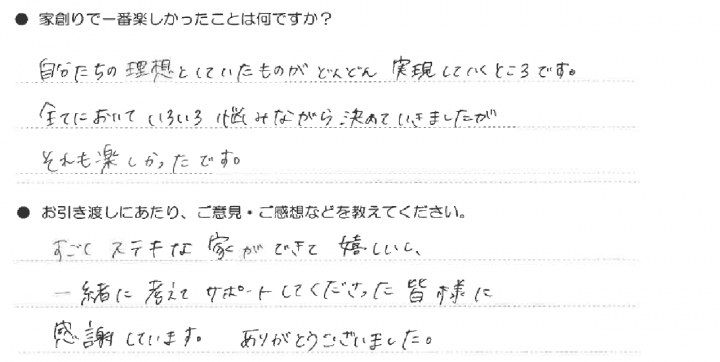 ● 家創りで一番楽しかったことは何ですか？
自分たちの理想としていたものがどんどん実現していくところです。
全てにおいていろいろ悩みながら決めていきましたが
それも楽しかったです。
● お引き渡しにあたり、ご意見・ご感想などを教えてください。
すごくステキな家ができて嬉しいし、
一緒に考えてサポートしてくださった皆様に
感謝しています。ありがとうございました。